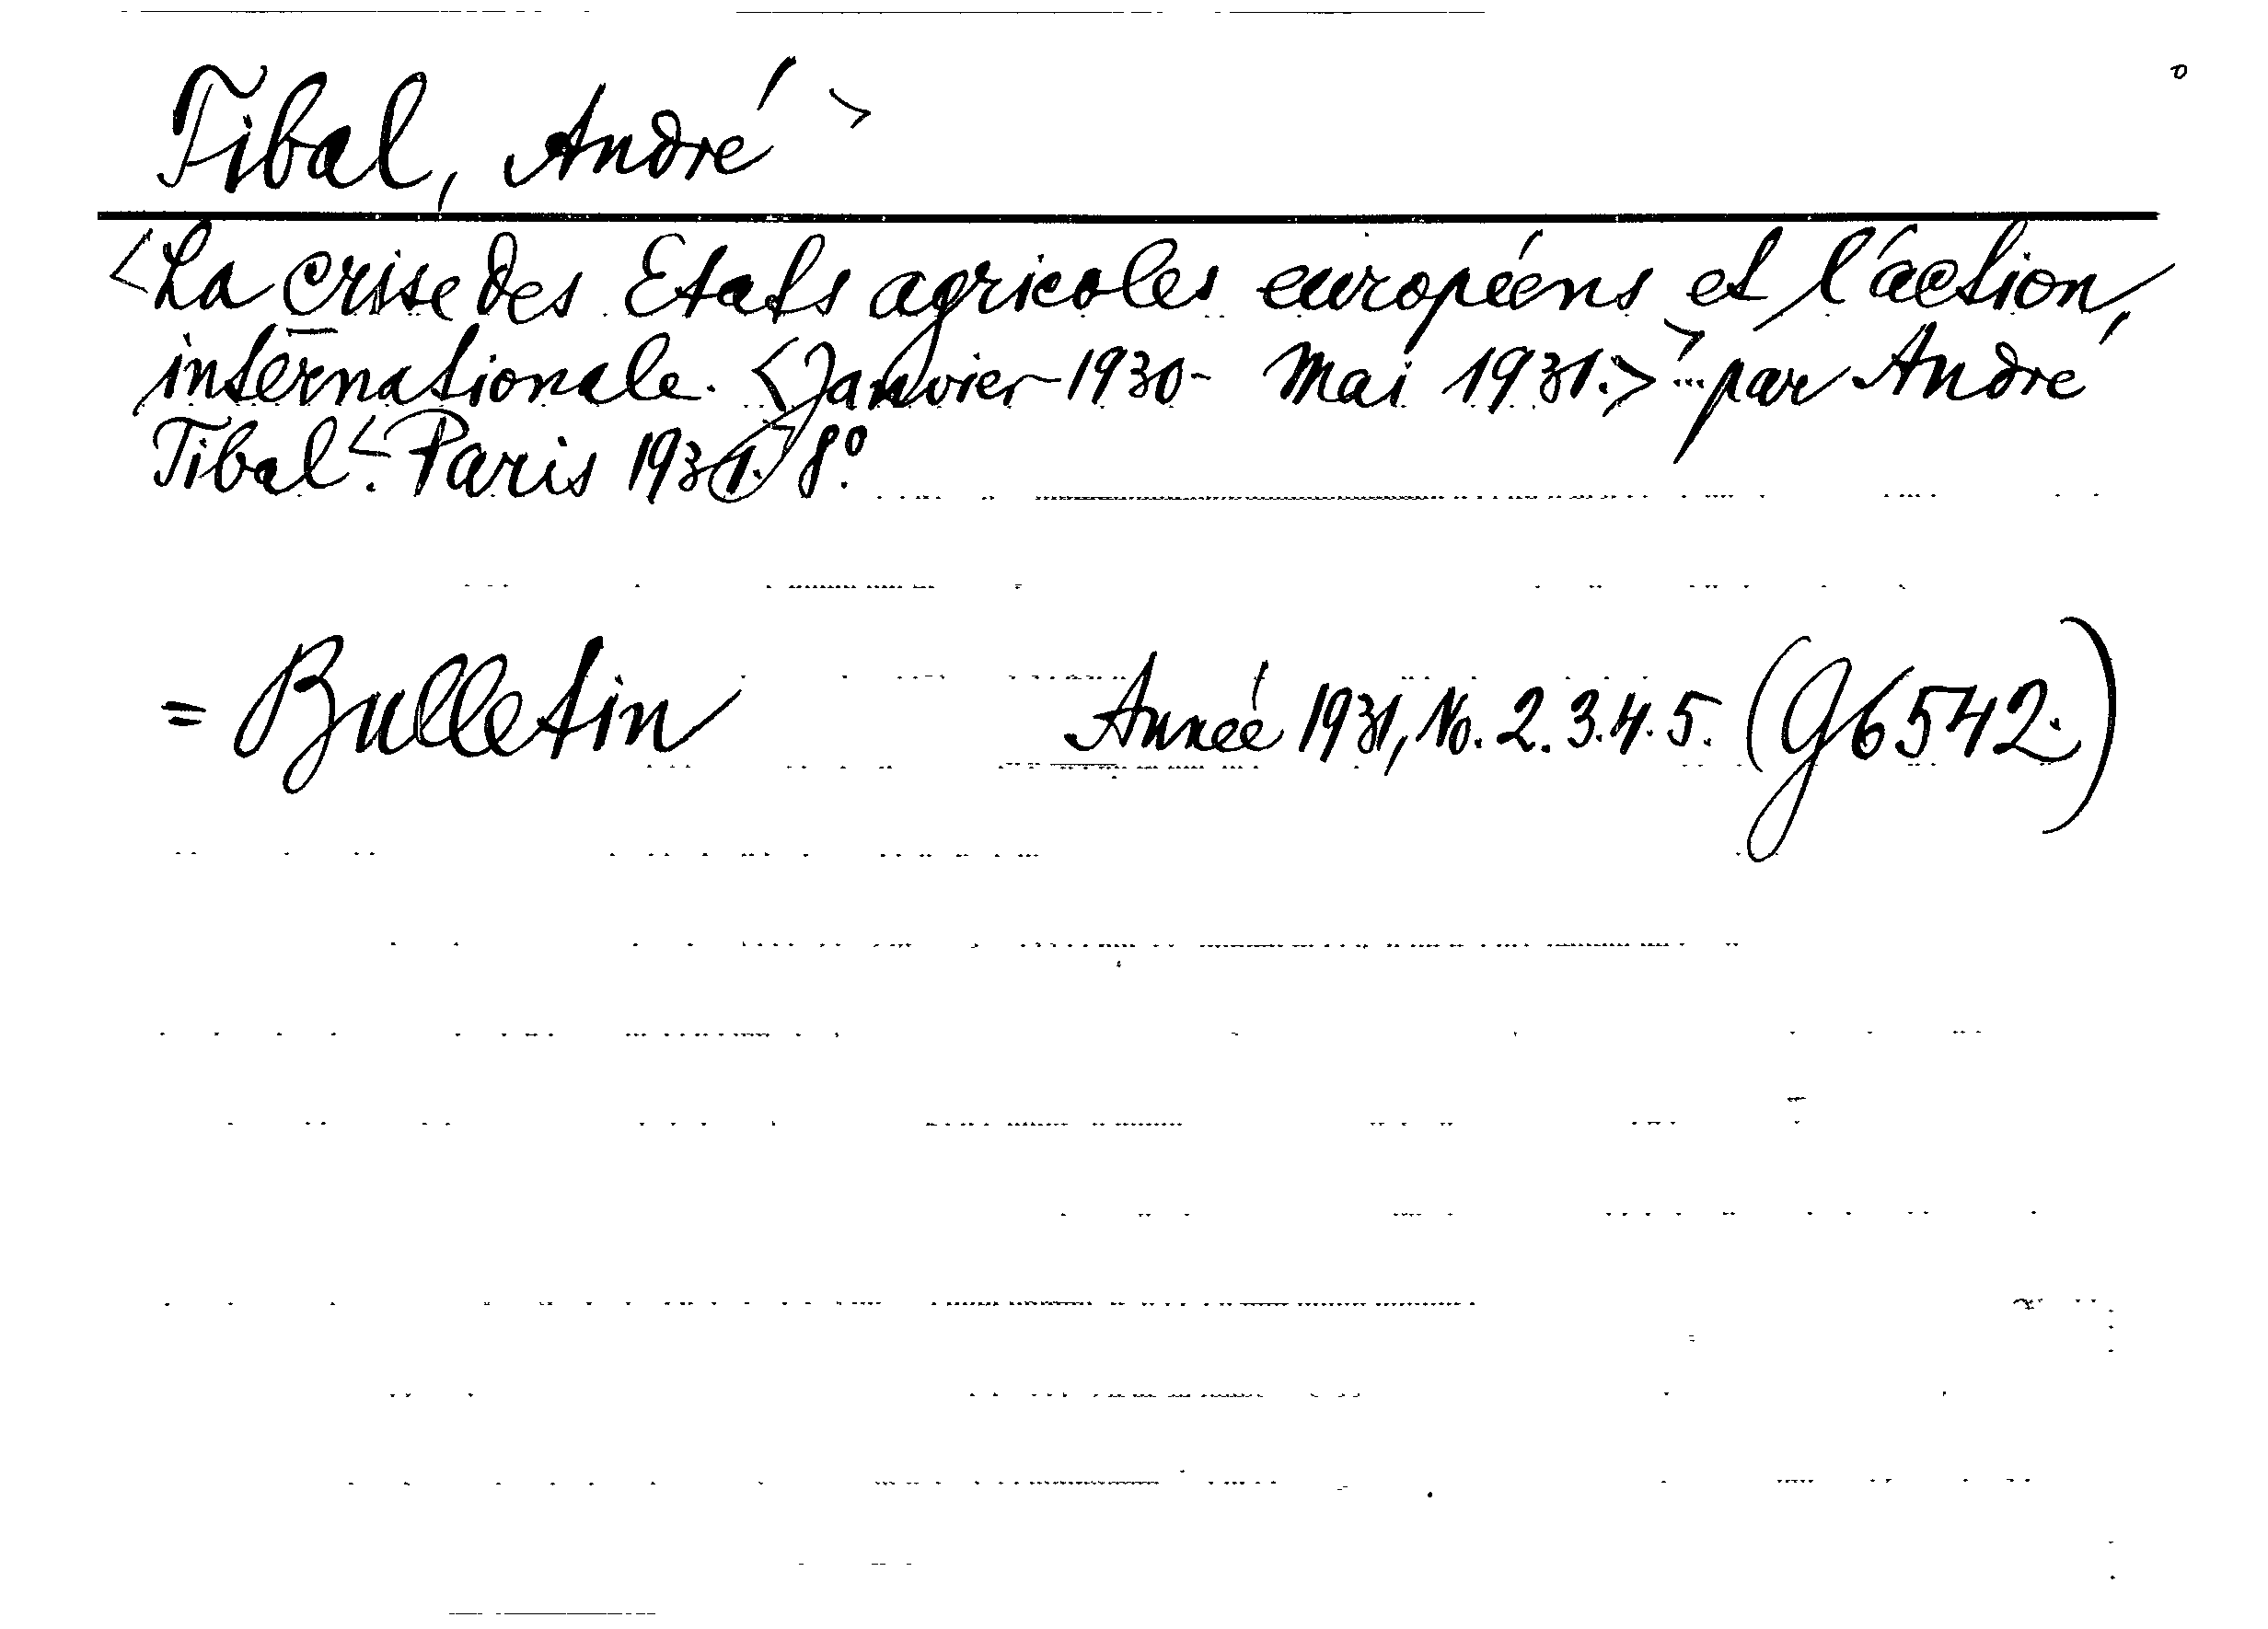 Tibal, André >
<La crise des Etats agricoles européens et l'action
internationale. <Janvier 1930- Mai 1931.> > ... par André
Tibal <. Paris 1931. > 8º.
= Bulletin Année 1931, No. 2. 3. 4. 5. (G 6542.)